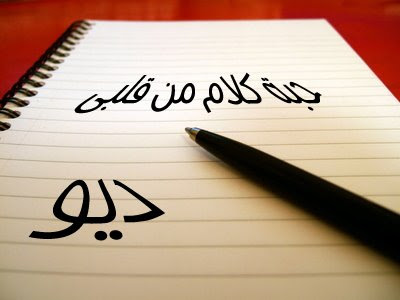 حبة كلام من قلبى
ديو